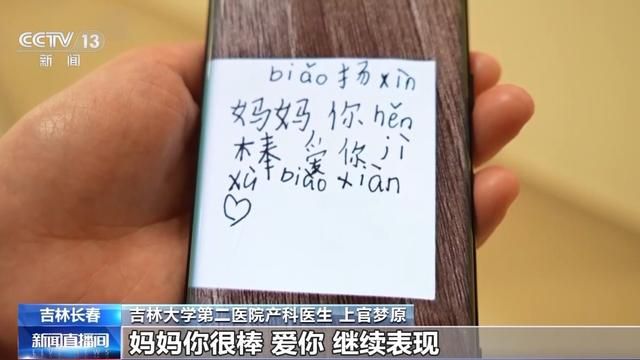 CCTV 13
新闻
biǎo扬xìn
妈妈你hěn
棒 爱你jì
xù biǎo xiàn
吉林长春
吉林大学第二医院产科医生 上官梦原
新闻直播间
妈妈你很棒 爱你 继续表现